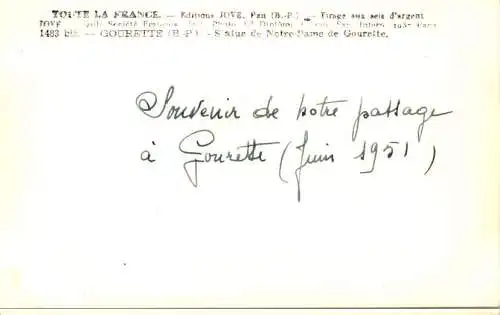 TOUTE LA FRANCE. — Editions JOVE, Pau (B.-P.) — Tirage aux sels d'argent
JOVE Société Française Photo
1483 bis. — GOURETTE (B-P.) — Statue de Notre-Dame de Gourette.
Souvenir de notre passage
à Gourette (Juin 1951)